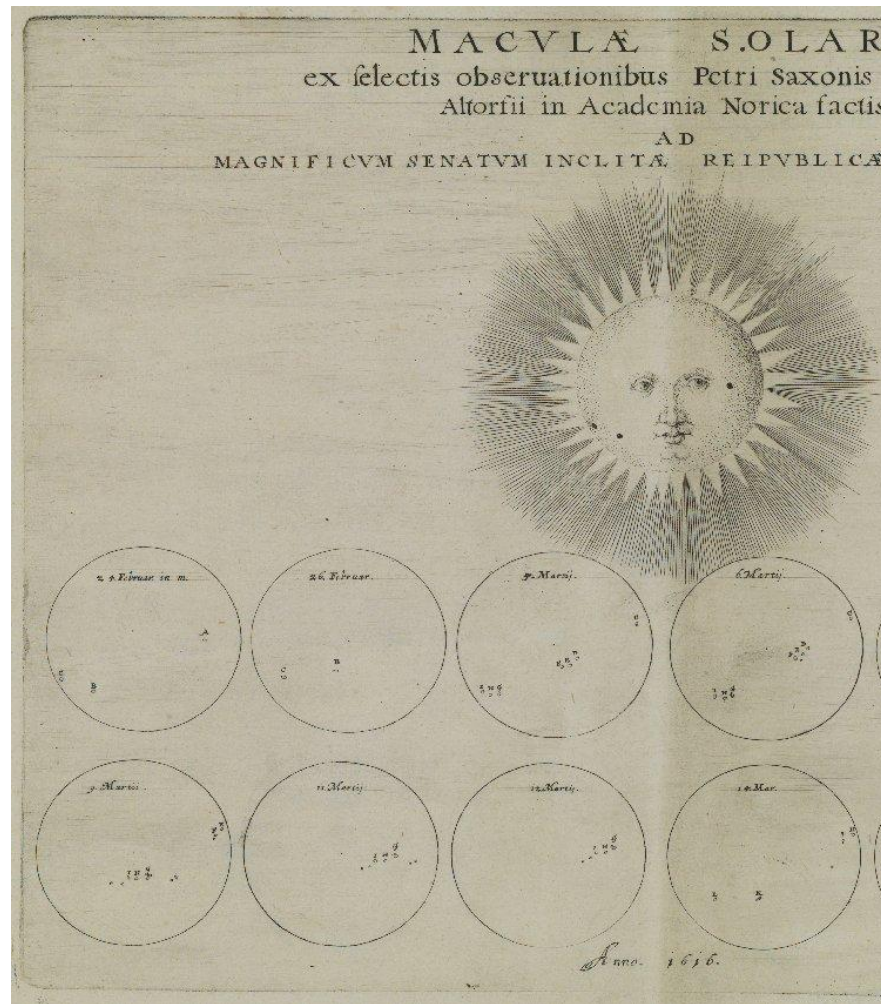 MACVLÆ S.OLAR
ex ſelectis obseruationibus Petri Saxonis
Altorfii in Academia Norica factis
AD
MAGNIFICVM SENATVM INCLITÆ REIPVBLICÆ
24. Februar. in m.
26. Februar.
Martij.
6. Martij.
9. Martii.
11. Martij
12. Martij.
14. Mar.
Anno. 1616.